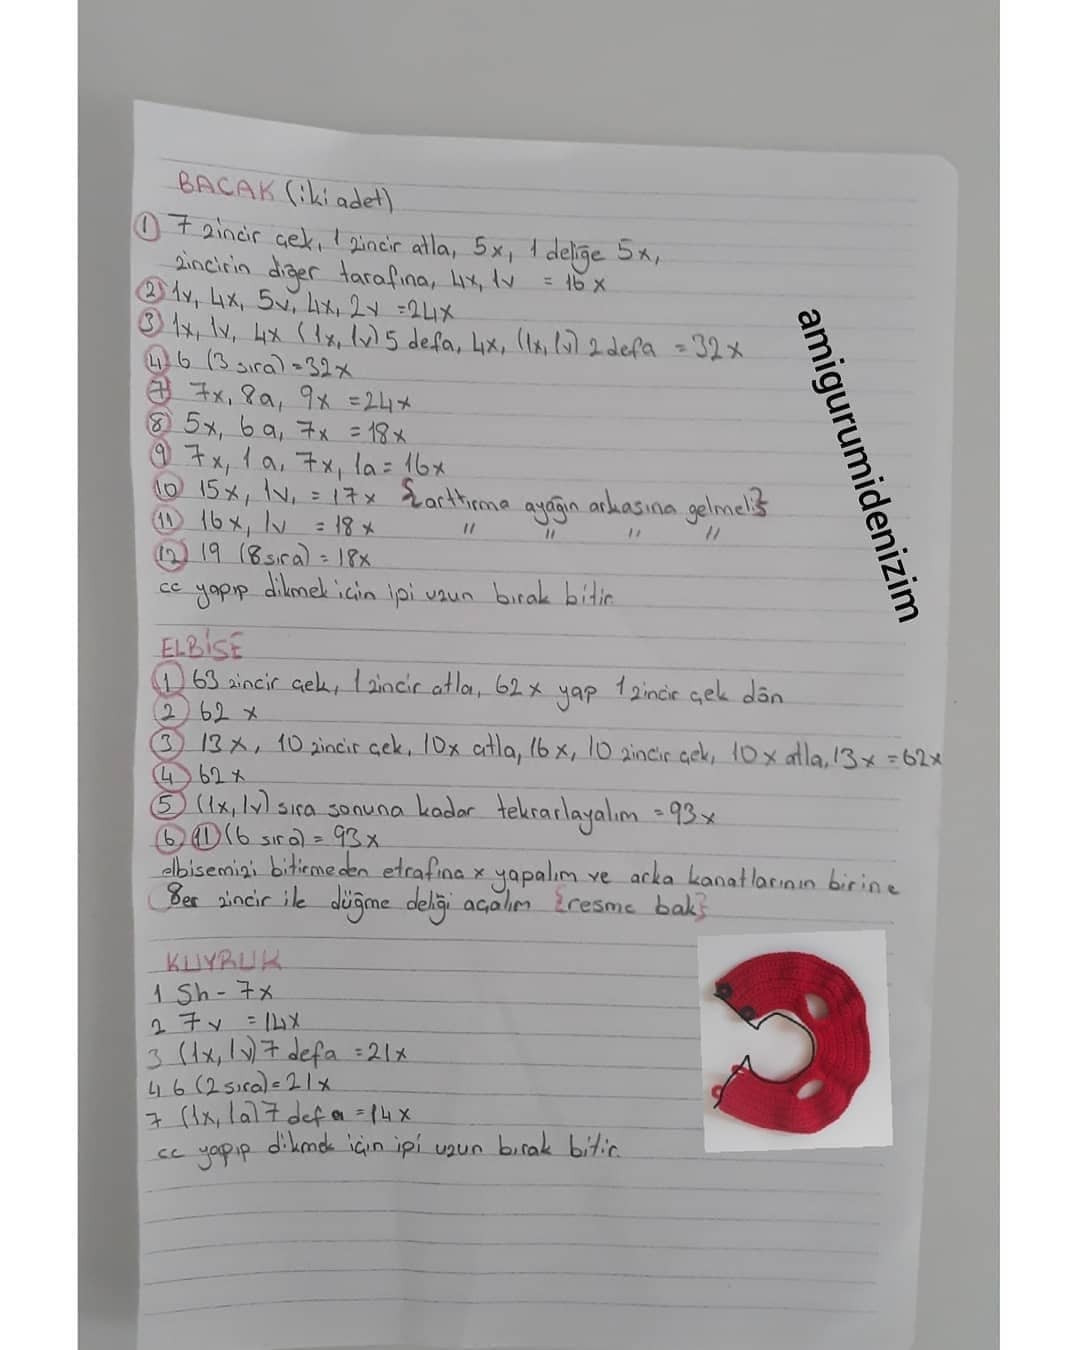 BACAK (iki adet)
1 7 zincir çek, 1 zincir atla, 5x, 1 deliğe 5x,
zincirin diğer tarafına, 4x, 1v = 16x
2 1v, 4x, 5v, 4x, 2v =24x
3 1x, 1v, 4x (1x, 1v) 5 defa, 4x, (1x, 1v) 2 defa =32x
4 6 (3 sıra) =32x
7 7x, 8a, 9x =24x
8 5x, 6a, 7x =18x
9 7x, 1a, 7x, 1a = 16x
10 15x, 1v, = 17x {arttırma ayağın arkasına gelmeli}
11 16x, 1v = 18x " " " "
12 19 (8 sıra) = 18x
cc yapıp dikmek için ipi uzun bırak bitir
ELBİSE
1 63 zincir çek, 1 zincir atla, 62x yap 1 zincir çek dön
2 62 x
3 13x, 10 zincir çek, 10x atla, 16x, 10 zincir çek, 10x atla, 13x =62x
4 62x
5 (1x, 1v) sıra sonuna kadar tekrarlayalım =93x
6 11 (6 sıra) = 93x
elbisemizi bitirmeden etrafına x yapalım ve arka kanatlarının birine
8er zincir ile düğme deliği açalım {resme bak}
KUYRUK
1 Sh - 7x
2 7v =14x
3 (1x, 1v) 7 defa =21x
4 6 (2 sıra) = 21x
7 (1x, 1a) 7 defa =14x
cc yapıp dikmek için ipi uzun bırak bitir
amigurumidenizim